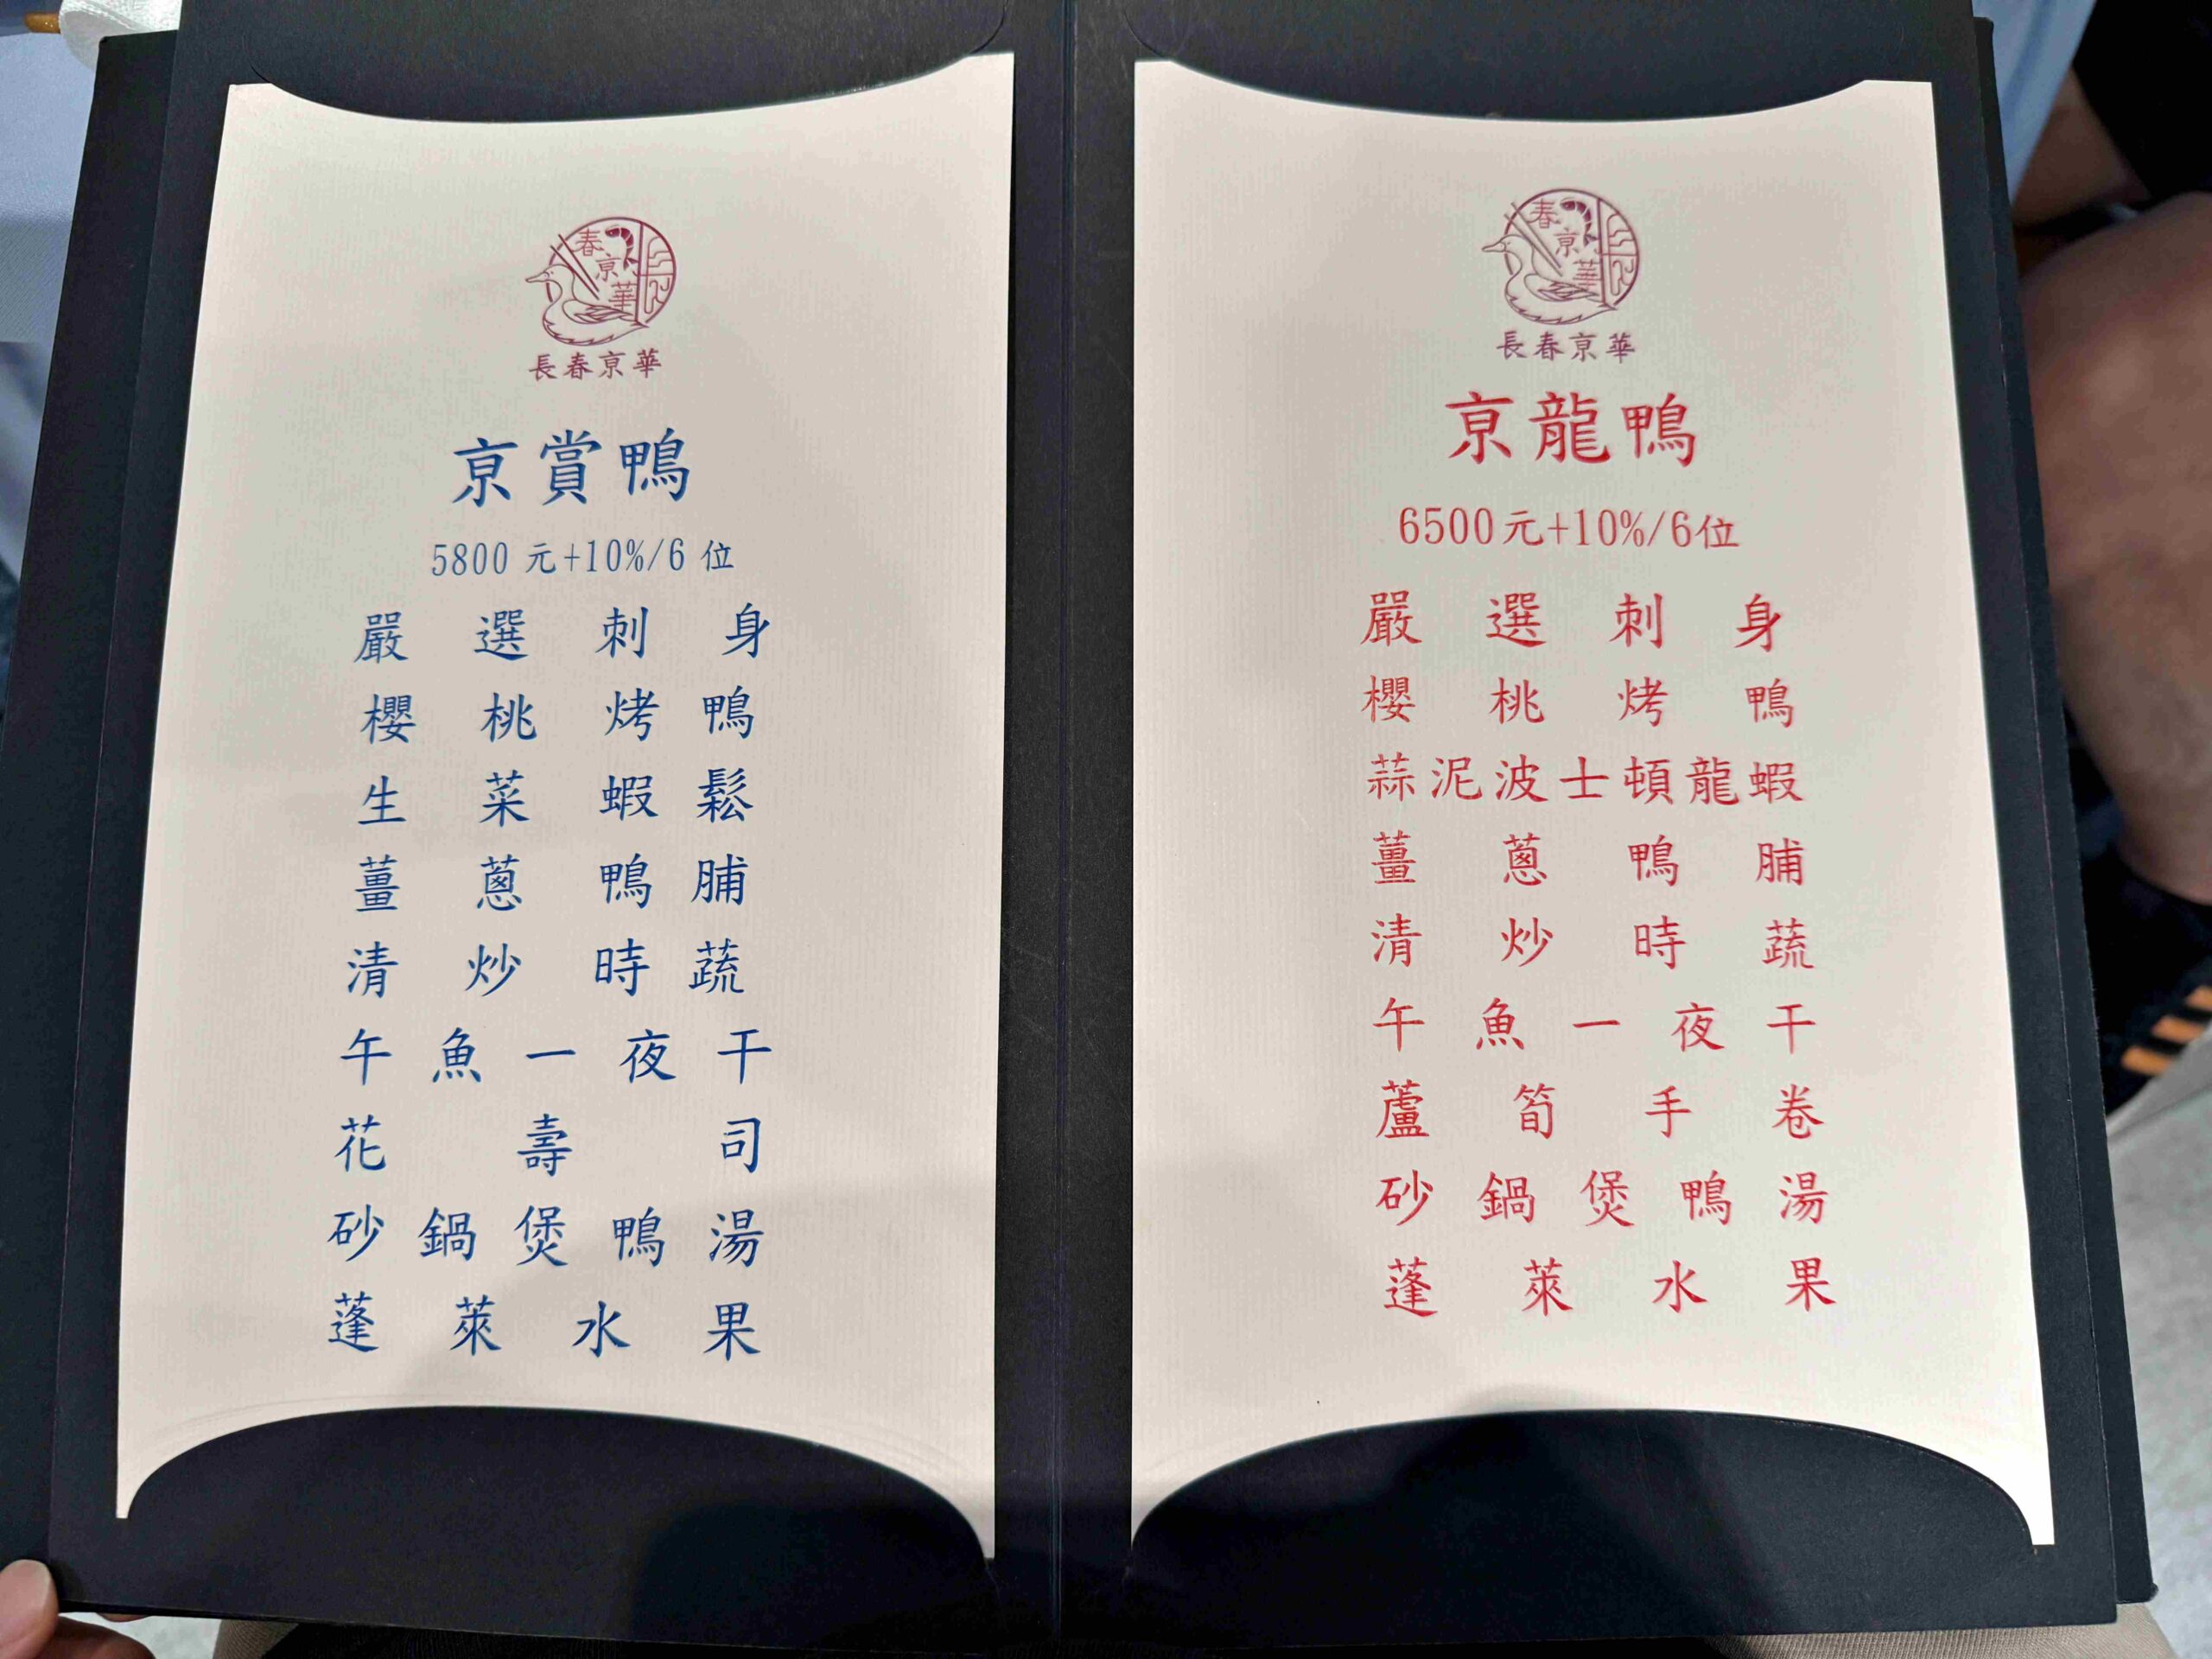 春京華
長春京華
京賞鴨
5800 元+10%/6 位
嚴選刺身
櫻桃烤鴨
生菜蝦鬆
薑蔥鴨脯
清炒時蔬
午魚一夜干
花壽司
砂鍋煲鴨湯
蓬萊水果
春京華
長春京華
京龍鴨
6500元+10%/6位
嚴選刺身
櫻桃烤鴨
蒜泥波士頓龍蝦
薑蔥鴨脯
清炒時蔬
午魚一夜干
蘆筍手卷
砂鍋煲鴨湯
蓬萊水果